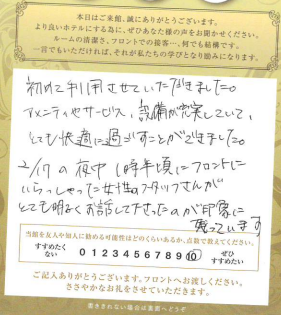 本日はご来館、誠にありがとうございます。
より良いホテルにする為に、ぜひあなた様の声をお聞かせください。
ルームの清潔さ、フロントでの接客…、何でも結構です。
一言でもいただければ、それが私たちの学びとなり励みになります。
初めて利用させていただきました。
アメニティやサービス、設備が充実していて、
とても快適に過ごすことができました。
2/17の夜中1時半頃にフロントに
いらっしゃった女性のスタッフさんが
とても明るくお話して下さったのが印象に
残っています
当館を友人や知人に勧める可能性はどのくらいあるか、点数で教えてください。
すすめたくない 0 1 2 3 4 5 6 7 8 9 10 ぜひすすめたい
ご記入ありがとうございます。フロントへお渡しください。
ささやかなお礼をさせていただきます。